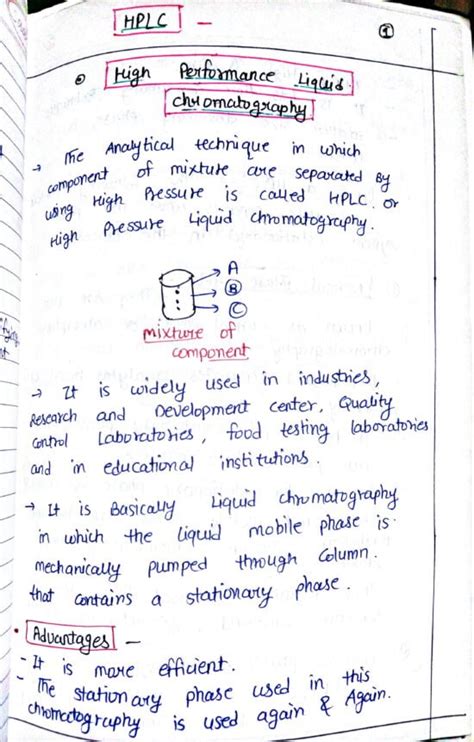 HPLC —
1
High Performance Liquid
chromatography
→ The Analytical technique in which
component of mixture are separated By
using High Pressure is called HPLC. or
High Pressure Liquid chromatography.
A
B
C
mixture of
component
→ It is widely used in industries,
Research and Development center, Quality
control Laboratories, food testing laboratories
and in educational institutions.
→ It is Basically Liquid chromatography
in which the liquid mobile phase is
mechanically pumped through column.
that contains a stationary phase.
• Advantages —
- It is more efficient.
- The stationary phase used in this
chromatography is used again & Again.